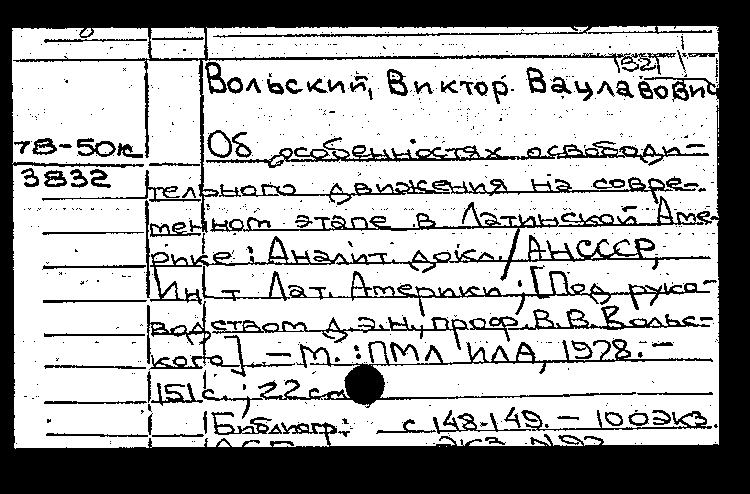 1321
Вольский, Виктор Вацлавович
78-50к
3832
Об особенностях освободи-
тельного движения на совре-
менном этапе в Латинской Аме-
рике : Аналит. докл. / АН СССР,
Ин-т Лат. Америки ; [Под руко-
водством д.э.н., проф. В.В. Вольс-
кого] - М. : ПМЛ ИЛА, 1978. -
151 с. ; 22 см
Библиогр.: с 148-149. - 100 экз.